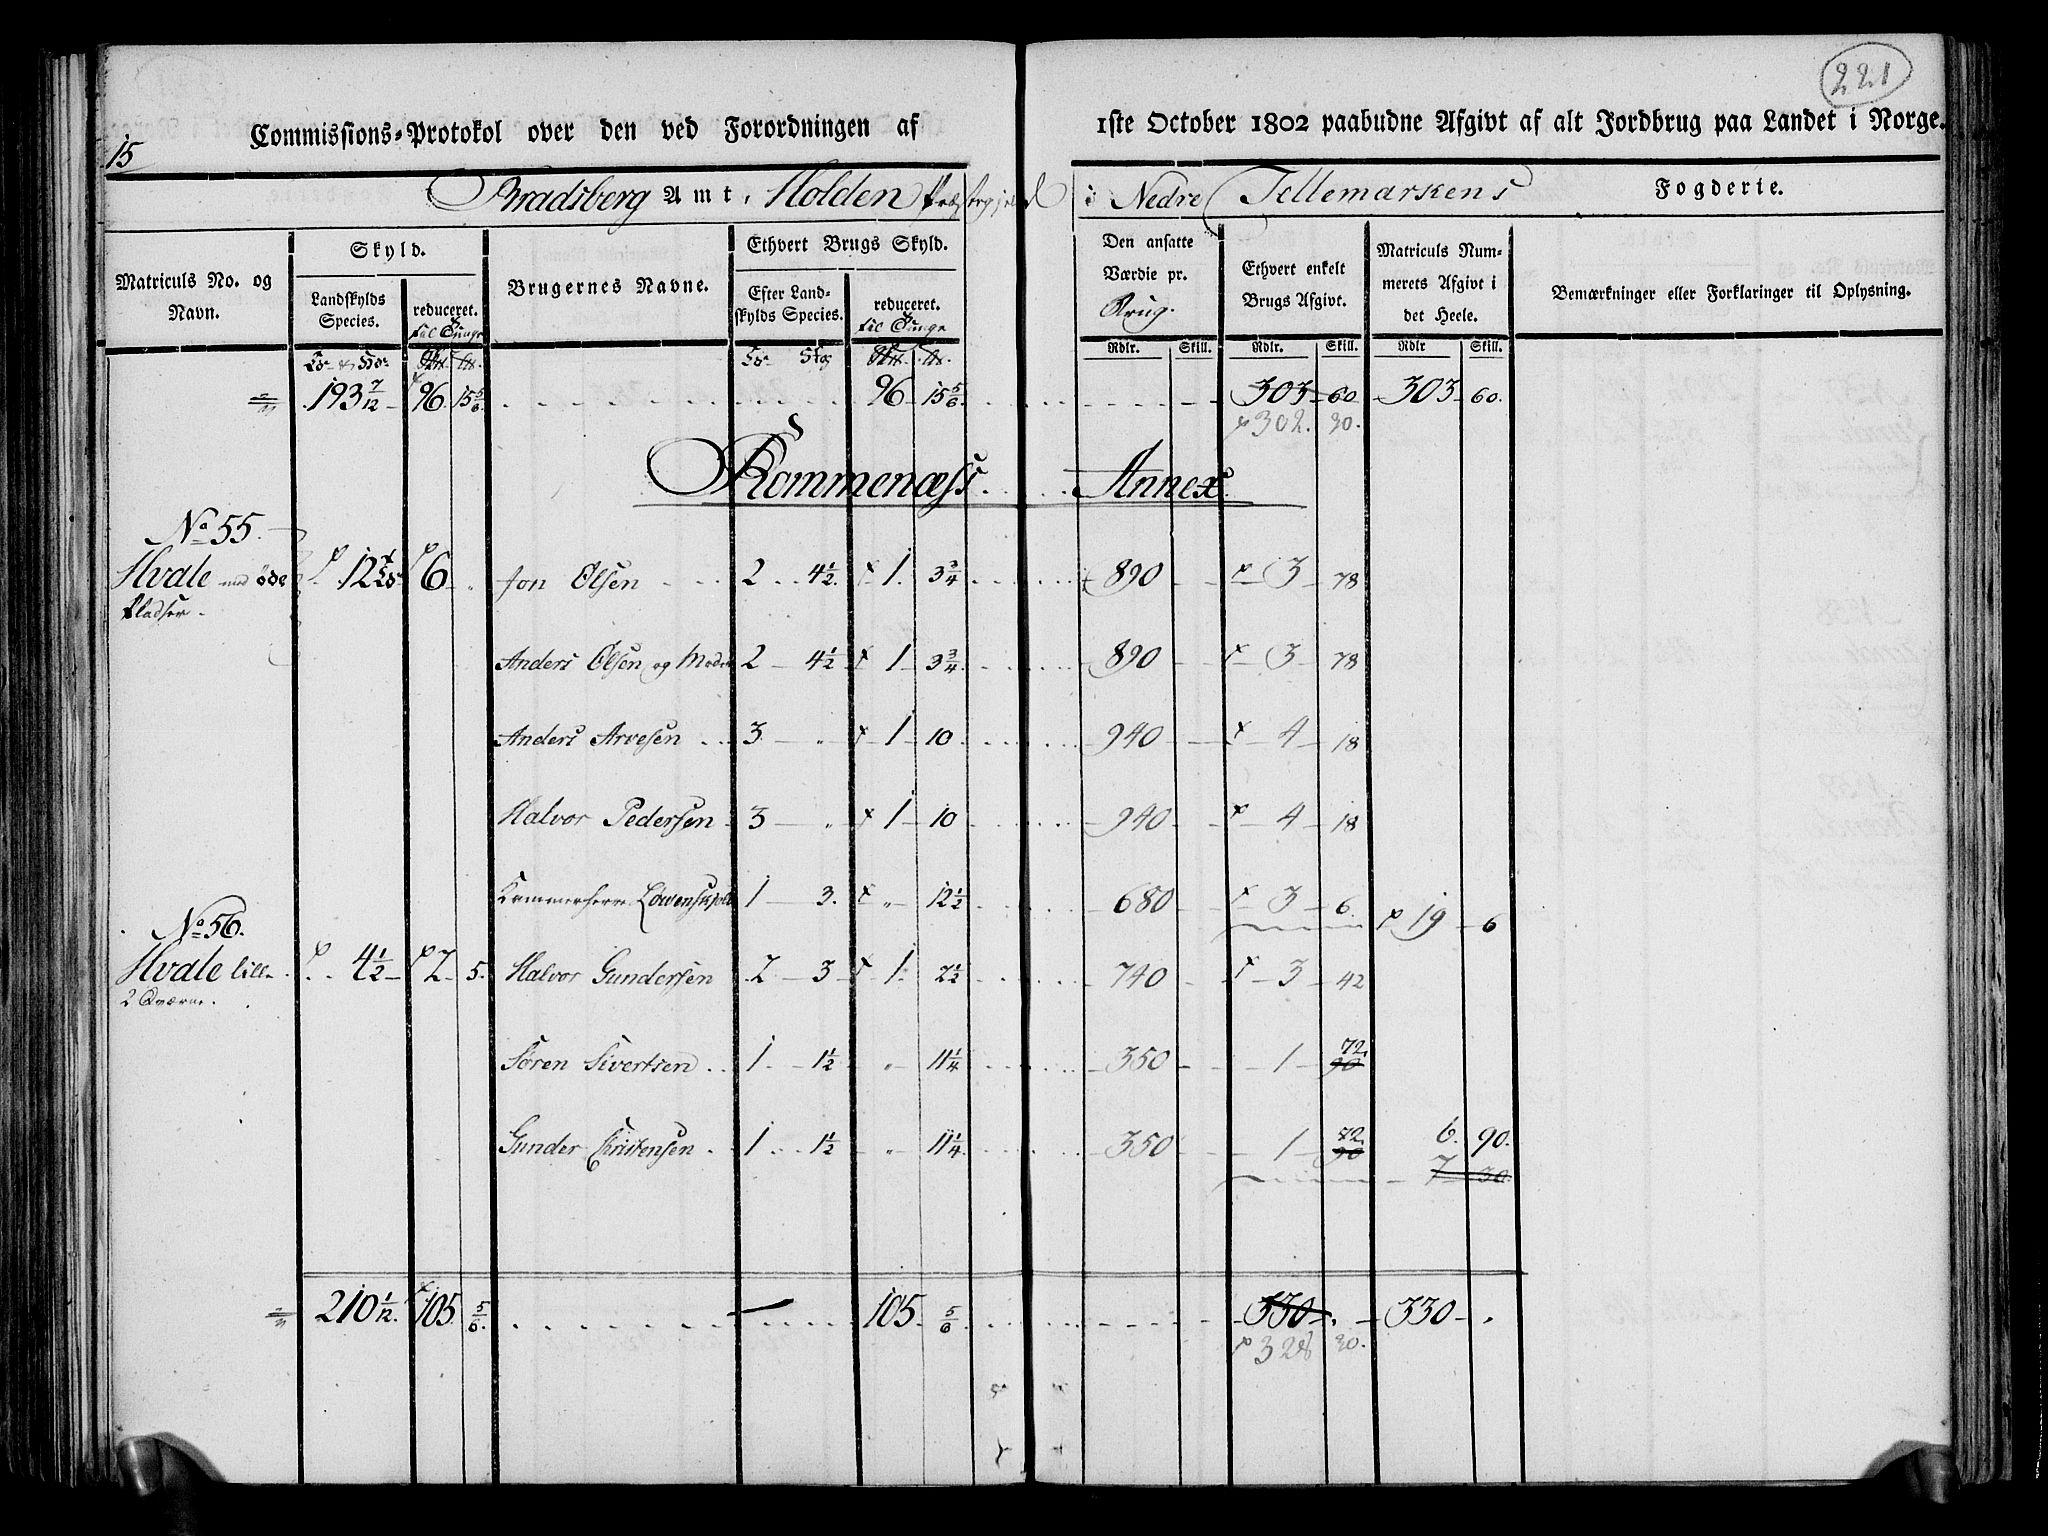 221
15
Commissions-Protokol over den ved Forordningen af 1ste October 1802 paabudne Afgivt af alt Jordbrug paa Landet i Norge.
Bradsberg Amt, Holden Præstegjeld i Nedre Tellemarkens Fogderie.
Matriculs No. og Navn.
Skyld.
Landskylds Species.
reduceret.
til Tunge
Brugernes Navne.
Ethvert Brugs Skyld.
Efter Landskylds Species.
reduceret.
til Tunge
Den ansatte Værdie pr. Brug.
Ethvert enkelt Brugs Afgivt.
Matriculs Nummerets Afgivt i det Heele.
Bemærkninger eller Forklaringer til Oplysning.
Rdlr. Skill. Rdlr. Skill. Rdlr Skill.
193 7/12 96 15 5/6 96 15 5/6 303 60 303 60.
302. 30.
Rommenæss Annex
No 55.
Hvale med øde Pladser. 12 6 Jon Olsen 2 4 1/2 1 3 3/4 890 3 78
Anders Olsen og Moder 2 4 1/2 1 3 3/4 890 3 78
Anders Arvesen 3 " 1 10 940 4 18
Halvor Pedersen 3 " 1 10 940 4 18
Kammerherre Løwenskjold 1 3. " 12 1/2 680 3 6. 19 6
No 56.
Hvale lille 4 1/2 2 5. Halvor Gundersen 2 3 1 2 1/2 740 3 42
2 Qværne.
Søren Sivertsen 1 1 1/2 " 11 1/4 350 1 72 90
Gunder Christensen 1 1 1/2 " 11 1/4 350 1 72 90 6. 90.
7 30
210 1/12 105 5/6 105 5/6 330 . 330 .
328 30.